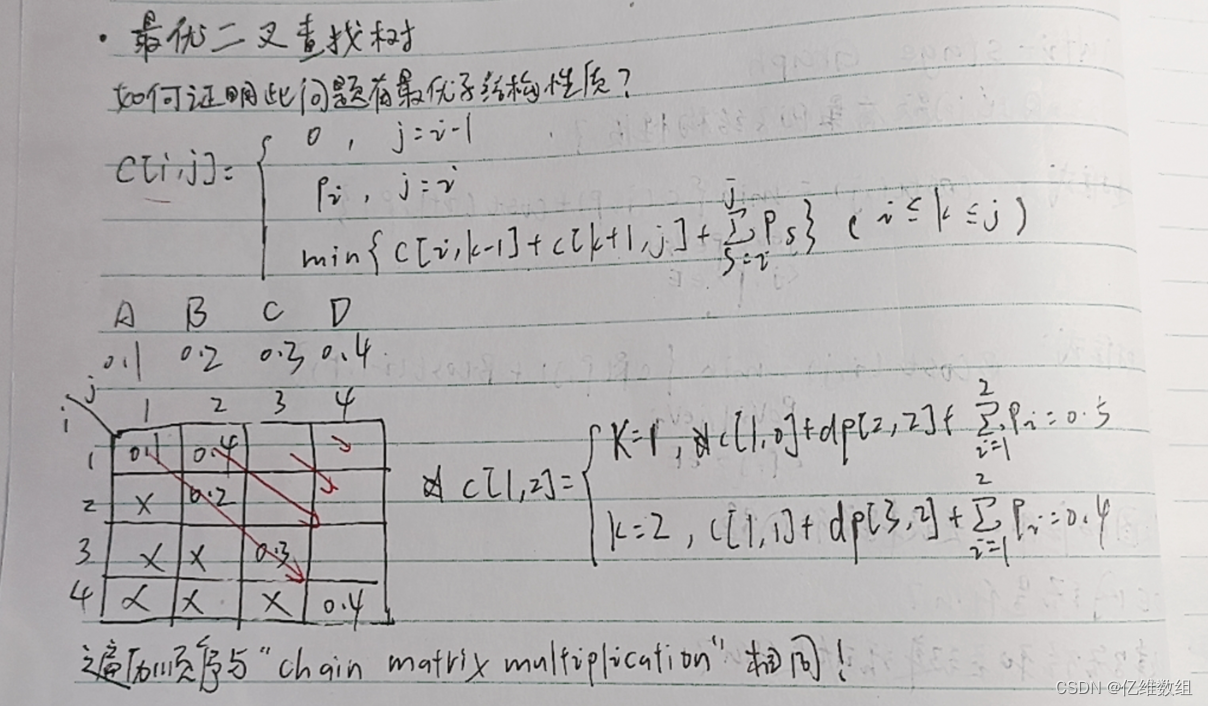 · 最优二叉查找树
如何证明此问题有最优子结构性质?
C[i,j]= { 0 , j=i-1
Pi , j=i
min{C[i,k-1]+C[k+1,j]+∑_{s=i}^{j} Ps} ( i≤k≤j )
A B C D
0.1 0.2 0.3 0.4
j
i 1 2 3 4
1 0.1 0.4
2 X 0.2
3 X X 0.3
4 X X X 0.4
C[1,2]= { K=1, C[1,0]+dp[2,2]+∑_{i=1}^{2} Pi=0.5
k=2, C[1,1]+dp[3,2]+∑_{i=1}^{2} Pi=0.4
遍历顺序与"chain matrix multiplication"相同!
CSDN @亿维数组